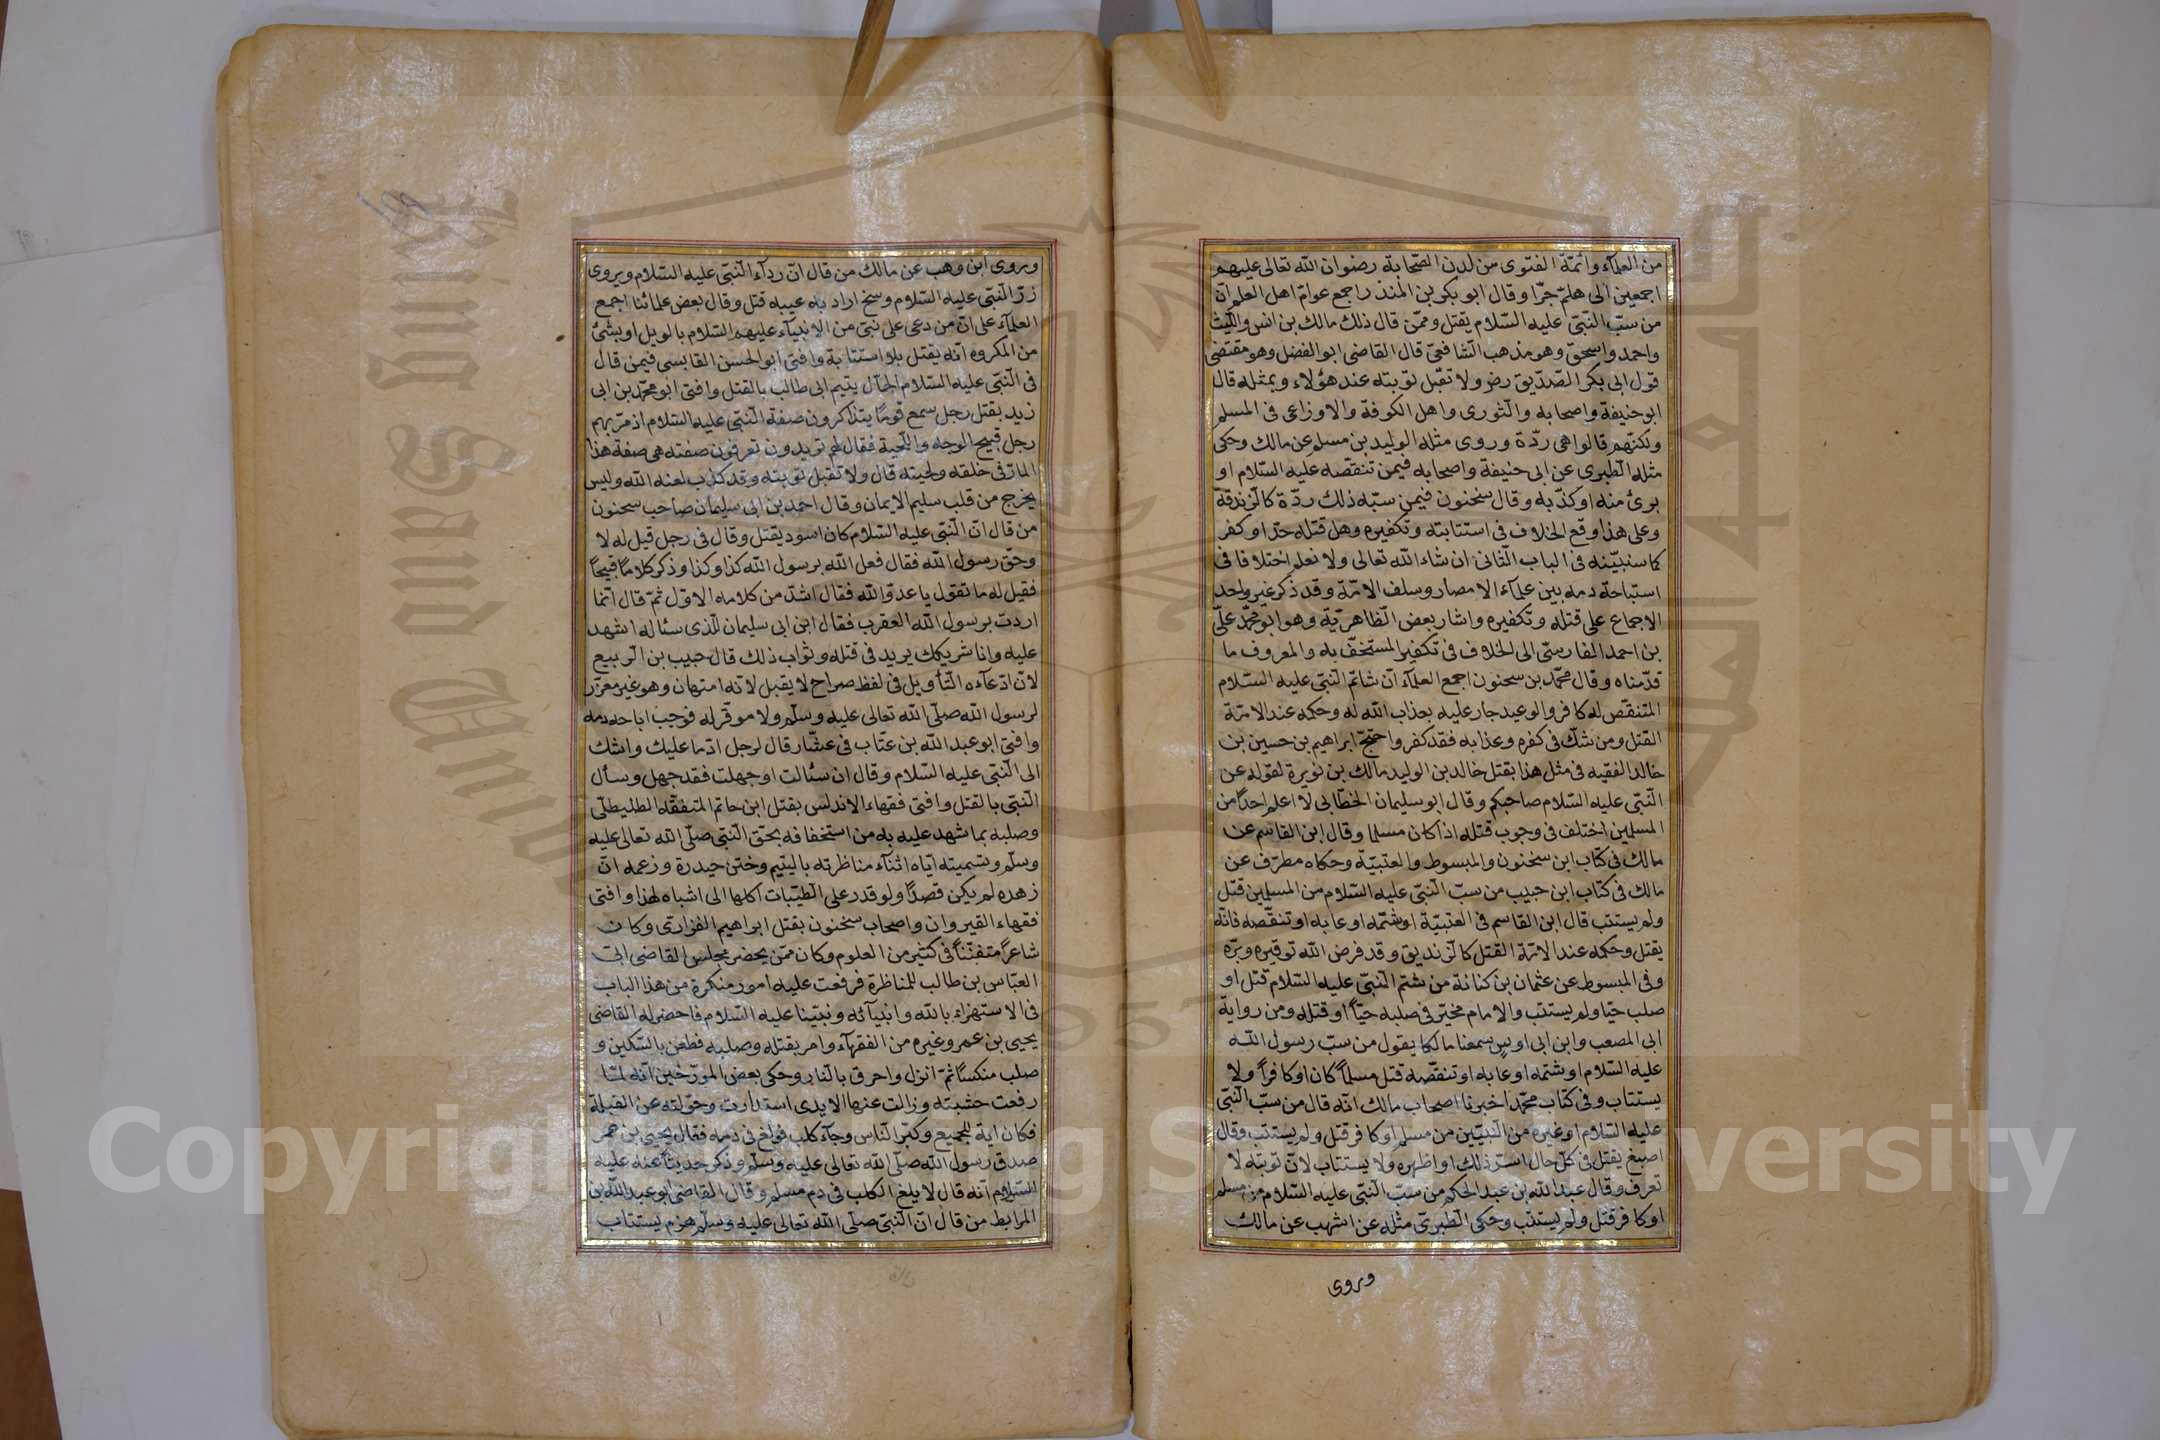 من العلمآء وائمّة الفتوى من لدن الصّحابة رضوان الله تعالى عليهم
اجمعين الى هلمّ جرّا وقال ابو بكر بن المنذر اجمع عوامّ اهل العلم انّ
من سبّ النّبىّ عليه السّلام يقتل وممّن قال ذلك مالك بن انس واللّيث
واحمد واسحق وهو مذهب الشّافعىّ قال القاضى ابو الفضل وهو مقتضى
قول ابى بكر الصّدّيق رض ولا تقبل توبته عند هؤلاء وبمثله قال
ابو حنيفة واصحابه والثّورى واهل الكوفة والاوزاعى فى المسلم
ولكنّهم قالوا هى ردّة وروى مثله الوليد بن مسلم عن مالك وحكى
مثله الطّبرى عن ابى حنيفة واصحابه فيمن تنقصه عليه السّلام او
برئ منه او كذّبه وقال سحنون فيمن سبّه ذلك ردّة كالزّندقة
وعلى هذا وقع الخلاف فى استتابته وتكفيره وهل قتله حدّ او كفر
كما سنبيّنه فى الباب الثّانى ان شاء الله تعالى ولا نعلم اختلافا فى
استباحة دمه بين علمآء الامصار وسلف الامّة وقد ذكر غير واحد
الاجماع على قتله وتكفيره واشار بعض الظّاهريّة وهو ابو محمّد علىّ
بن احمد الفارسىّ الى الخلاف فى تكفير المستخفّ به والمعروف ما
قدّمناه وقال محمّد بن سحنون اجمع العلمآء انّ شاتم النّبىّ عليه السّلام
المتنقّص له كافر والوعيد جار عليه بعذاب الله له وحكمه عند الامّة
القتل ومن شكّ فى كفره وعذابه فقد كفر واحتجّ ابراهيم بن حسين بن
خالد الفقيه فى مثل هذا بقتل خالد بن الوليد مالك بن نويرة لقوله عن
النّبى عليه السّلام صاحبكم وقال ابو سليمان الخطّابى لا اعلم احدًا من
المسلمين اختلف فى وجوب قتله اذا كان مسلما وقال ابن القاسم عن
مالك فى كتاب ابن سحنون والمبسوط والعتبيّة وحكاه مطرّف عن
مالك فى كتاب ابن حبيب من سبّ النّبىّ عليه السّلام من المسلمين قتل
ولم يستتب قال ابن القاسم فى العتبيّة او شتمه او عابه او تنقّصه فانّه
يقتل وحكمه عند الامّة القتل كالزّنديق وقد فرض الله توقيره وبرّه
وفى المبسوط عن عثمان بن كنانة من شتم النّبىّ عليه السّلام قتل او
صلب حيّا ولم يستتب والامام مخيّر فى صلبه حيّا او قتله ومن رواية
ابى المصعب وابن ابى اويس سمعنا مالكا يقول من سبّ رسول الله
عليه السّلام او شتمه او عابه او تنقّصه قتل مسلمًا كان او كافرًا ولا
يستتاب وفى كتاب محمّد اخبرنا اصحاب مالك انّه قال من سبّ النّبىّ
عليه السّلام او غيره من النّبيّين من مسلم او كافر قتل ولم يستتب وقال
اصبغ يقتل فى كلّ حال اسرّ ذلك او اظهره ولا يستتاب لانّ توبته لا
تعرف وقال عبد الله بن عبد الحكم من سبّ النّبىّ عليه السّلام من مسلم
او كافر قتل ولم يستتب وحكى الطّبرىّ مثله عن اشهب عن مالك
وروى
وروى ابن وهب عن مالك من قال انّ ردآء النّبىّ عليه السّلام ويروى
زرّ النّبى عليه السّلام وسخ اراد به عيبه قتل وقال بعض علمائنا اجمع
العلمآء على انّ من دعى على نبىّ من الانبيآء عليهم السّلام بالويل او بشئ
من المكروه انّه يقتل بلا استتابة وافتى ابو الحسن القابسى فيمن قال
فى النّبّى عليه السّلام الجمّال يتيم ابى طالب بالقتل وافتى ابو محمّد بن ابى
زيد بقتل رجل سمع قومًا يتذاكرون صفة النّبّى عليه السّلام اذ مرّ بهم
رجل قبيح الوجه واللّحية فقال لهم تريدون تعرفون صفته هى صفة هذا
المارّ فى خلقه ولحيته قال ولا تقبل توبته وقد كذب لعنه الله وليس
يخرج من قلب سليم الايمان وقال احمد بن ابى سليمان صاحب سحنون
من قال انّ النّبّى عليه السّلام كان اسود يقتل وقال فى رجل قيل له لا
وحقّ رسول الله فقال فعل الله برسول الله كذا وكذا وذكر كلامًا قبيحًا
فقيل له ما تقول يا عدوّ الله فقال اشدّ من كلامه الاوّل ثمّ قال انّما
اردت برسول الله العقرب فقال ابن ابى سليمان للّذى سئاله اشهد
عليه وانا شريكك يريد فى قتله وثواب ذلك قال حبيب بن الرّبيع
لانّ ادّعآءه التّأويل فى لفظ صراح لا يقبل لانّه امتهان وهو غير معزّر
لرسول الله صلّى الله تعالى عليه وسلّم ولا موقّر له فوجب اباحة دمه
وافتى ابو عبد الله بن عتّاب فى عشّار قال لرجل ادّ ما عليك واشك
الى النّبّى عليه السّلام وقال ان سئالت او جهلت فقد جهل وسأل
النّبّى بالقتل وافتى فقهاء الاندلس بقتل ابن حاتم المتفقّه الطّليطلّى
وصلبه بما شهد عليه به من استخفافه بحقّ النّبّى صلّى الله تعالى عليه
وسلّم وتسميته ايّاه اثنآء مناظرته باليتيم وختن حيدرة وزعمه انّ
زهده لم يكن قصدًا ولو قدر على الطّيّبات اكلها الى اشباه لهذا وافتى
فقهاء القيروان واصحاب سحنون بقتل ابراهيم الفزارى وكان
شاعرًا متفنّنًا فى كثير من العلوم وكان ممّن يحضر مجلس القاضى ابى
العبّاس بن طالب للمناظرة فرفعت عليه امور منكرة من هذا الباب
فى الاستهزاء بالله وانبيآئه ونبيّنا عليه السّلام فاحضر له القاضى
يحيى بن عمر وغيره من الفقهآء وامر بقتله وصلبه فطعن بالسّكين و
صلب منكسًا ثمّ انزل واحرق بالنّار وحكى بعض المورّخين انّه لمّا
رفعت خشبته وزالت عنها الايدى استدارت وحوّلته عن القبلة
فكان اية للجميع وكبّر النّاس وجآء كلب فولغ فى دمه فقال يحيى بن عمر
صدق رسول الله صلّى الله تعالى عليه وسلّم وذكر حديثا عنه عليه
السّلام انّه قال لا يلغ الكلب فى دم مسلم وقال القاضى ابو عبد الله بن
المرابط من قال انّ النّبّى صلّى الله تعالى عليه وسلّم هزم يستتاب
Copyright King Saud University